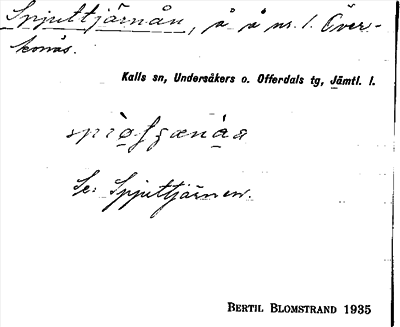 Spjuttjärnån, å å nr. 1. Över-
konäs.
Kalls sn, Undersåkers o. Offerdals tg, Jämtl. l.
Se: Spjuttjärnen.
BERTIL BLOMSTRAND 1935